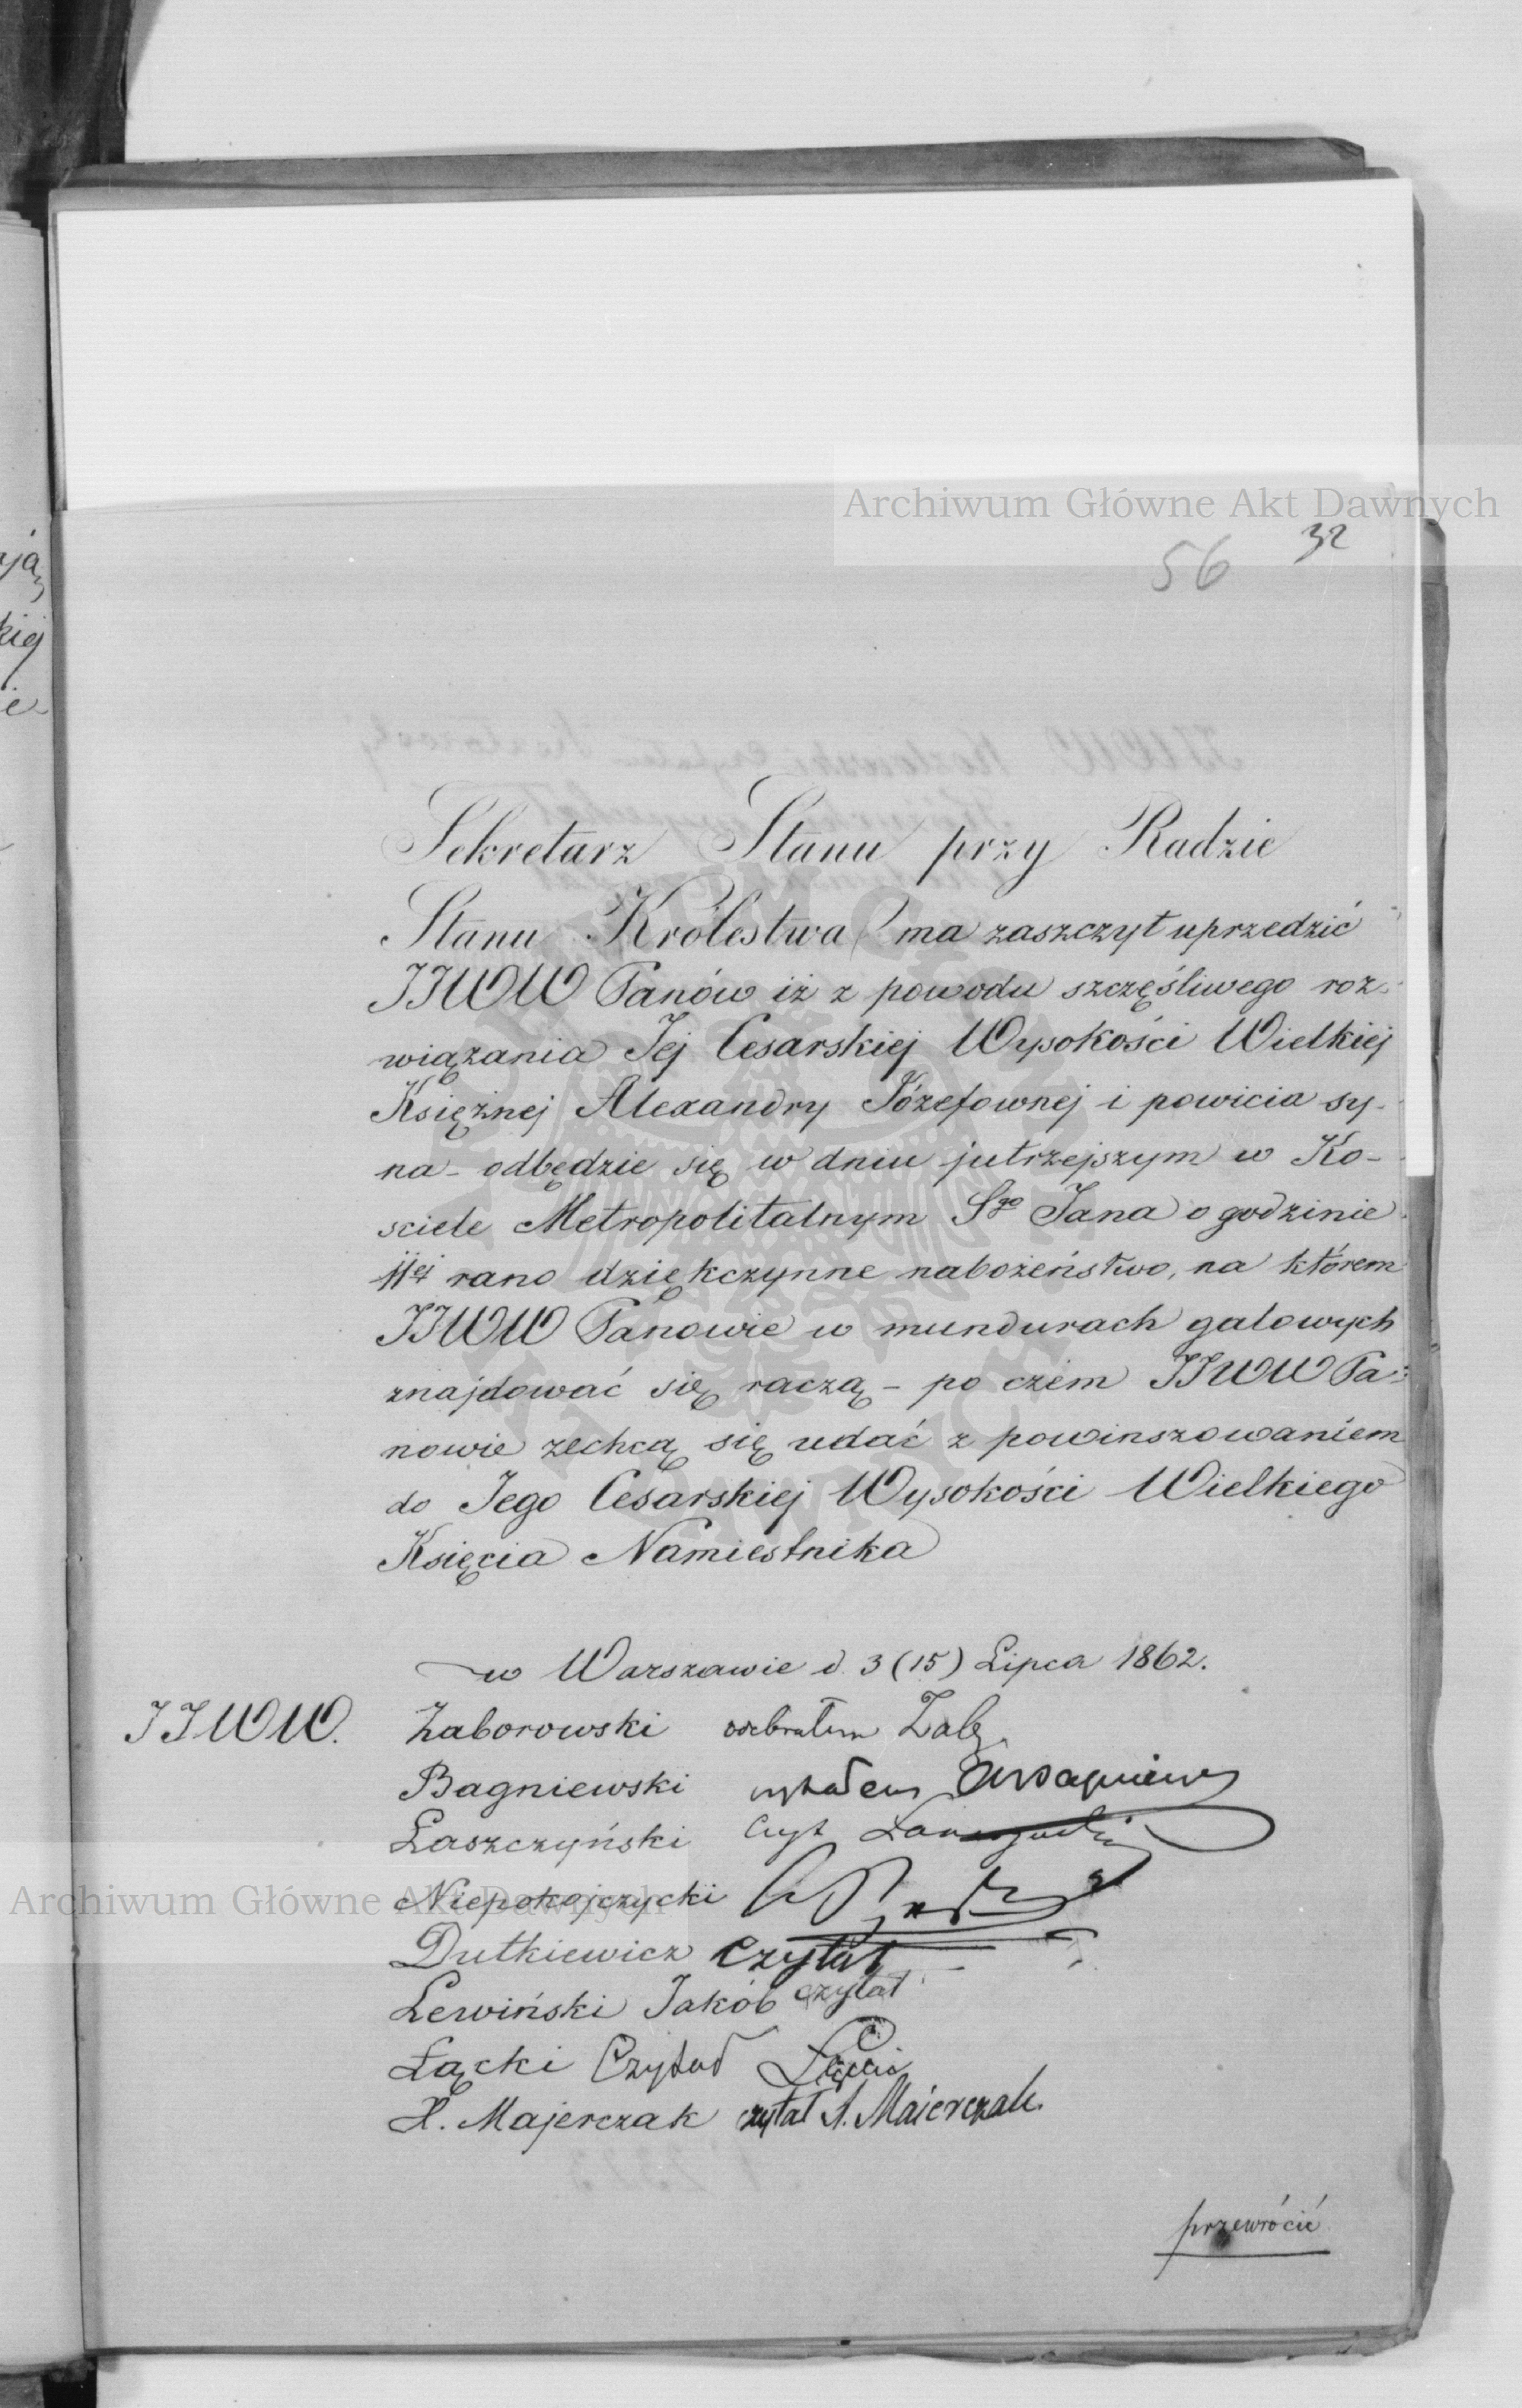 Archiwum Główne Akt Dawnych
32
56
Sekretarz Stanu przy Radzie
Stanu Królestwa ma zaszczyt uprzedzić
JJWW Panów iż z powodu szczęśliwego roz-
wiązania Jej Cesarskiej Wysokości Wielkiej
Księżnej Alexandry Józefownej i powicia sy-
na - odbędzie się w dniu jutrzejszym w Ko-
sciele Metropolitalnym Sgo Jana o godzinie
11ej rano dziękczynne nabożeństwo, na którem
JJWW Panowie w mundurach galowych
znajdować się raczą - po czem JJWW Pa-
nowie zechcą się udać z powinszowaniem
do Jego Cesarskiej Wysokości Wielkiego
Księcia Namiestnika
w Warszawie d. 3 (15) Lipca 1862.
JJWW. Zaborowski odebrałem Zab
Bagniewski czytałem
Łaszczyński Czyt
Archiwum Główne Akt Dawnych
Niepokojczycki
Dutkiewicz Czytał
Lewiński Jakób czytał
Łącki Czytał Łącki
X. Majerczak czytał Maierczak
przewrócić